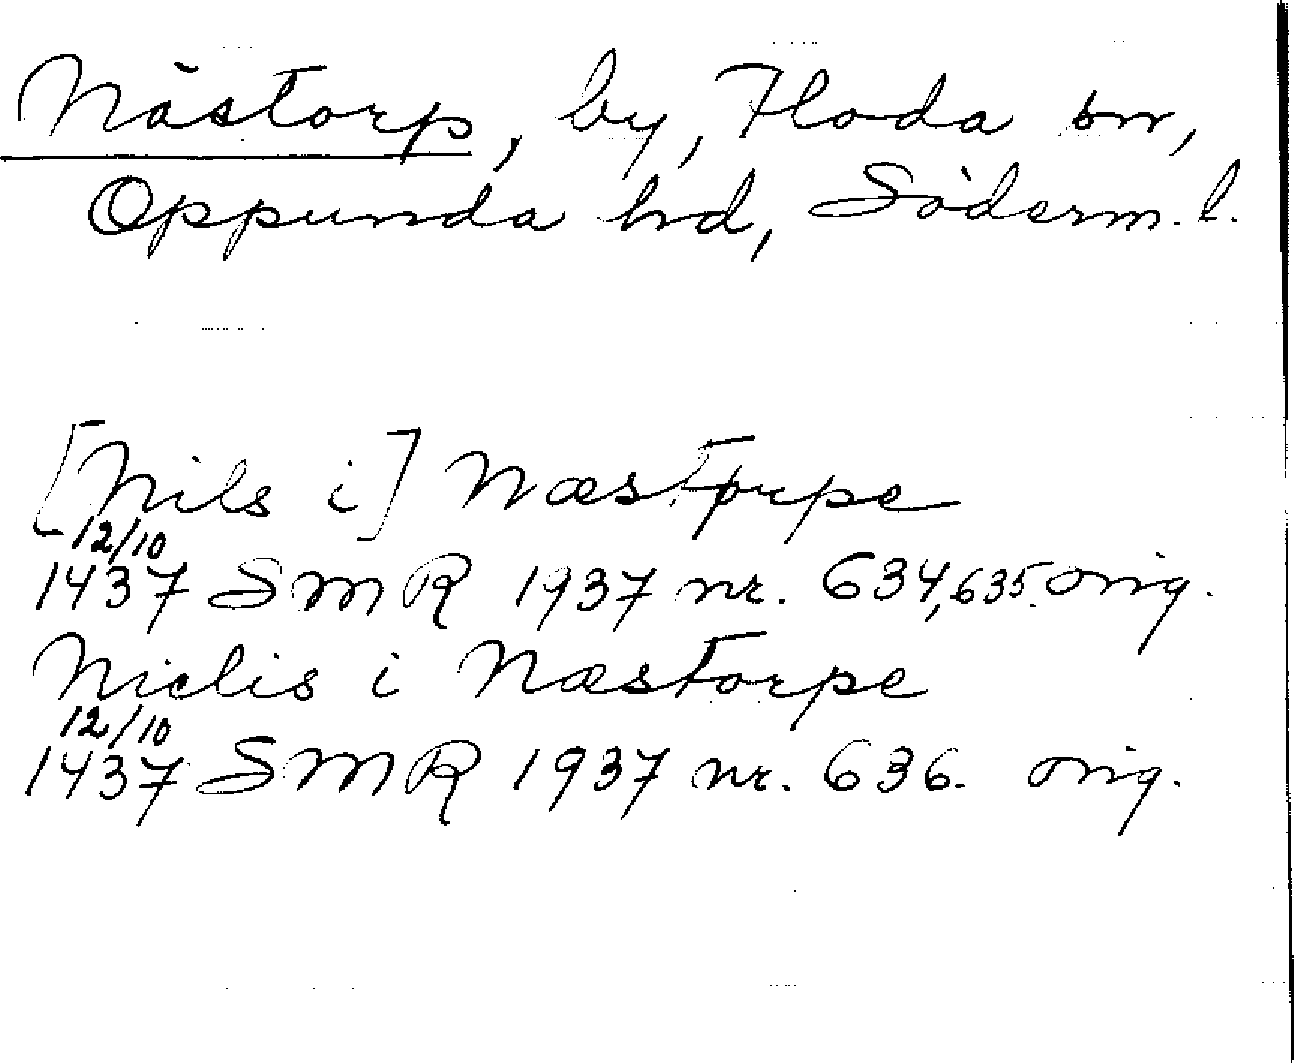 Nästorp, by, Floda sn,
Oppunda hd, Söderm. l.
[Nils i] Næstorpe
12/10
1437 SMR 1937 nr. 634, 635. orig.
Niclis i Næstorpe
12/10
1437 SMR 1937 nr. 636. orig.